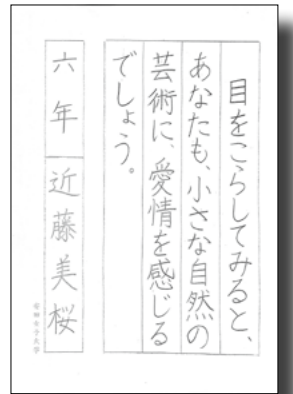 目をこらしてみると、
あなたも、小さな自然の
芸術に、愛情を感じる
でしょう。
六年 近藤美桜